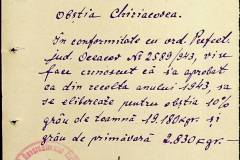 Obștia Chiriacosea.
In conformitate cu ord. Prefect.
Jud. Oceacov Nr 2589/943, vi se
face cunoscut că s'a aprobat
ca din recolta anului 1943, sa
se elibereze pentru obștia 10%
grâu de toamnă 19.180 kgr - si
grâu de primăvară 2.830 kgr. -